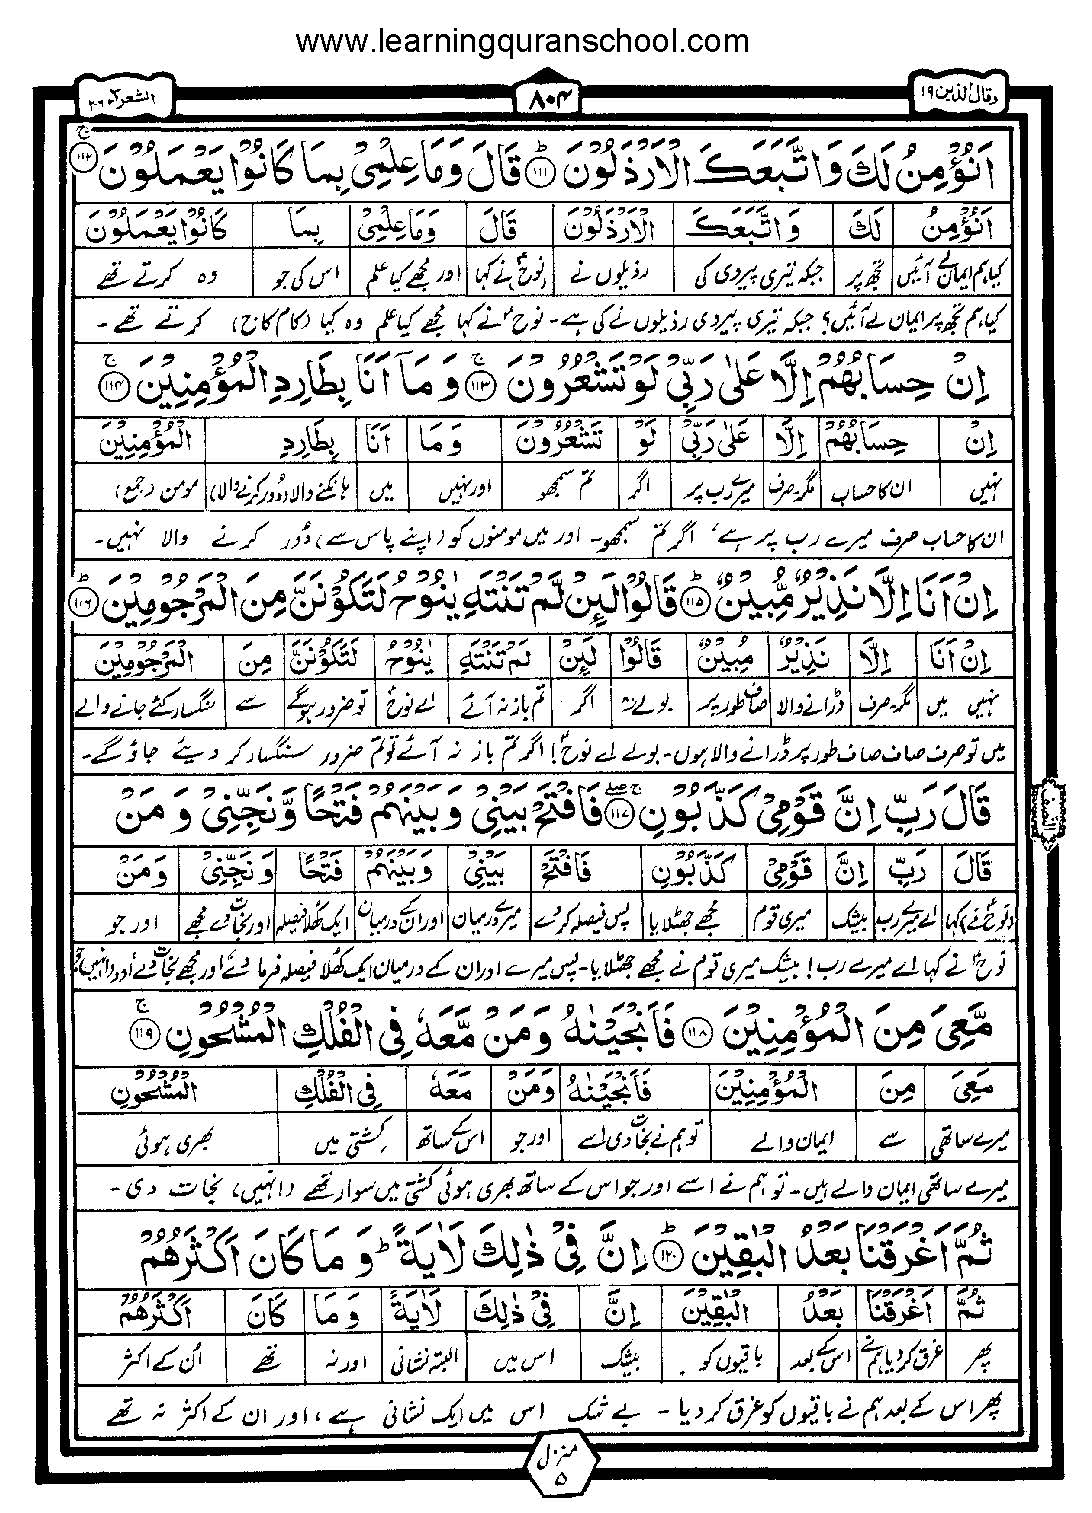 www.learningquranschool.com
وقال الذین ۱۹ ۸۰۴ الشعرآء ۲۶
اَنُؤْمِنُ لَكَ وَاتَّبَعَكَ الْاَرْذَلُوْنَ ؕ﴿۱۱۱﴾ قَالَ وَمَا عِلْمِیْ بِمَا كَانُوْا یَعْمَلُوْنَ ۚ﴿۱۱۲﴾
اَنُؤْمِنُ لَكَ وَاتَّبَعَكَ الْاَرْذَلُوْنَ قَالَ وَمَا عِلْمِیْ بِمَا كَانُوْا یَعْمَلُوْنَ
کیا ہم ایمان لے آئیں تجھ پر جبکہ تیری پیروی کی رذیلوں نے (نوحؑ) نے کہا اور مجھے کیا علم اس کی جو وہ کرتے تھے
کیا ہم تجھ پر ایمان لے آئیں؟ جبکہ تیری پیروی رذیلوں نے کی ہے۔ نوحؑ نے کہا مجھے کیا علم وہ کیا (کام کاج) کرتے تھے۔
اِنْ حِسَابُهُمْ اِلَّا عَلٰی رَبِّیْ لَوْ تَشْعُرُوْنَ ۚ﴿۱۱۳﴾ وَمَاۤ اَنَا بِطَارِدِ الْمُؤْمِنِیْنَ ۚ﴿۱۱۴﴾
اِنْ حِسَابُهُمْ اِلَّا عَلٰی رَبِّیْ لَوْ تَشْعُرُوْنَ وَمَا اَنَا بِطَارِدِ الْمُؤْمِنِیْنَ
نہیں ان کا حساب مگر صرف میرے رب پر اگر تم سمجھو اور نہیں میں ہانکنے والا (دور کرنے والا) مومن (جمع)
ان کا حساب صرف میرے رب پر ہے، اگر تم سمجھو۔ اور میں مومنوں کو (اپنے پاس سے) دُور کرنے والا نہیں۔
اِنْ اَنَا اِلَّا نَذِیْرٌ مُّبِیْنٌ ؕ﴿۱۱۵﴾ قَالُوْا لَىِٕنْ لَّمْ تَنْتَهِ یٰنُوْحُ لَتَكُوْنَنَّ مِنَ الْمَرْجُوْمِیْنَ ؕ﴿۱۱۶﴾
اِنْ اَنَا اِلَّا نَذِیْرٌ مُبِیْنٌ قَالُوْا لَىِٕنْ لَمْ تَنْتَهِ یٰنُوْحُ لَتَكُوْنَنَّ مِنَ الْمَرْجُوْمِیْنَ
نہیں میں مگر صرف ڈرانے والا صاف طور پر بولے وہ اگر تم باز نہ آئے اے نوحؑ تو ضرور ہوگے سے سنگسار کئے جانے والے
میں تو صرف صاف صاف طور پر ڈرانے والا ہوں۔ بولے اے نوحؑ! اگر تم باز نہ آئے تو تم ضرور سنگسار کر دیئے جاؤ گے۔
قَالَ رَبِّ اِنَّ قَوْمِیْ كَذَّبُوْنِ ۚۖ﴿۱۱۷﴾ فَافْتَحْ بَیْنِیْ وَبَیْنَهُمْ فَتْحًا وَّنَجِّنِیْ وَمَنْ
قَالَ رَبِّ اِنَّ قَوْمِیْ كَذَّبُوْنِ فَافْتَحْ بَیْنِیْ وَبَیْنَهُمْ فَتْحًا وَنَجِّنِیْ وَمَنْ
(نوحؑ نے) کہا اے میرے رب بیشک میری قوم مجھے جھٹلایا پس فیصلہ کر دے میرے درمیان اور ان کے درمیان ایک کھلا فیصلہ اور نجات دے مجھے اور جو
نوحؑ نے کہا اے میرے رب! بیشک میری قوم نے مجھے جھٹلایا۔ پس میرے اور ان کے درمیان ایک کھلا فیصلہ فرما دے، اور مجھے نجات دے اور (انہیں) جو
مَّعِیَ مِنَ الْمُؤْمِنِیْنَ ﴿۱۱۸﴾ فَاَنْجَیْنٰهُ وَمَنْ مَّعَهٗ فِی الْفُلْكِ الْمَشْحُوْنِ ۚ﴿۱۱۹﴾
مَعِیَ مِنَ الْمُؤْمِنِیْنَ فَاَنْجَیْنٰهُ وَمَنْ مَعَهٗ فِی الْفُلْكِ الْمَشْحُوْنِ
میرے ساتھی سے ایمان والے تو ہم نے نجات دی اسے اور جو اس کے ساتھ کشتی میں بھری ہوئی
میرے ساتھی ایمان والے ہیں۔ تو ہم نے اسے اور جو اس کے ساتھ بھری ہوئی کشتی میں سوار تھے (انہیں) نجات دی۔
ثُمَّ اَغْرَقْنَا بَعْدُ الْبٰقِیْنَ ؕ﴿۱۲۰﴾ اِنَّ فِیْ ذٰلِكَ لَاٰیَةً ؕ وَمَا كَانَ اَكْثَرُهُمْ
ثُمَّ اَغْرَقْنَا بَعْدُ الْبٰقِیْنَ اِنَّ فِیْ ذٰلِكَ لَاٰیَةً وَمَا كَانَ اَكْثَرُهُمْ
پھر غرق کر دیا ہم نے اس کے بعد باقیوں کو بیشک اس میں البتہ نشانی اور نہ تھے اُن کے اکثر
پھر اس کے بعد ہم نے باقیوں کو غرق کر دیا۔ بے شک اس میں ایک نشانی ہے، اور ان کے اکثر نہ تھے
منزل ۵